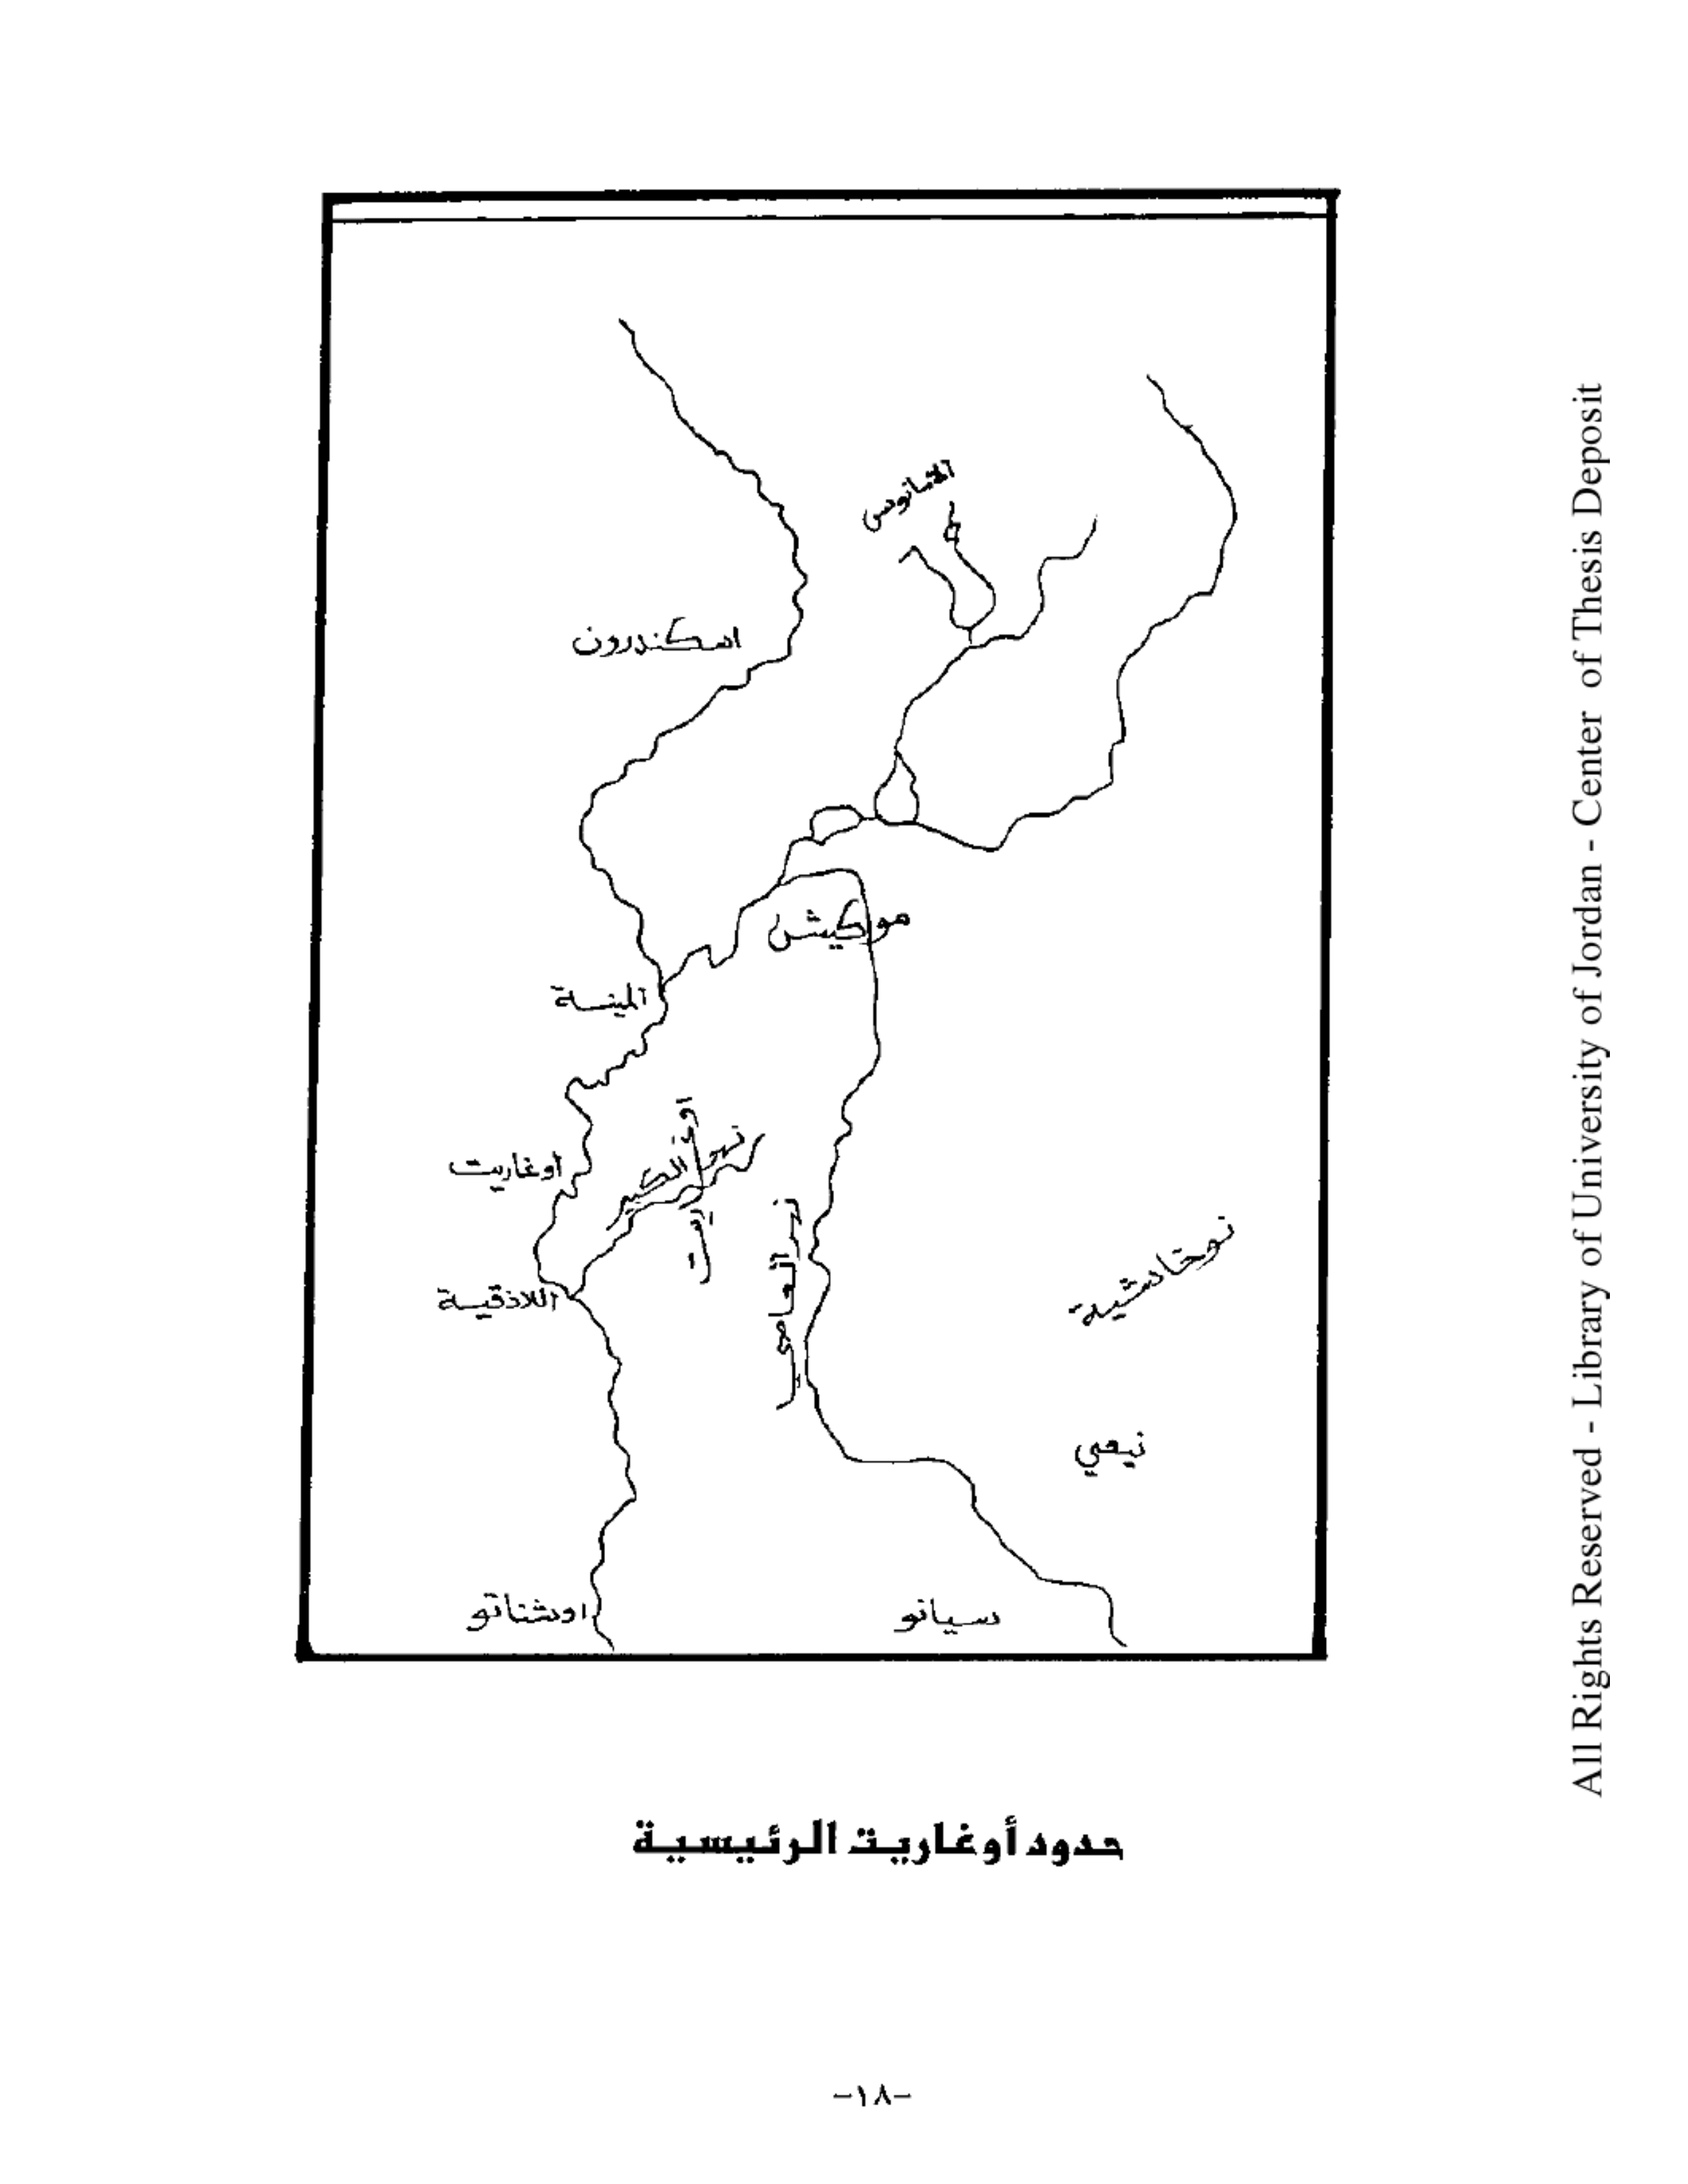 الامانوس
اسكندرون
موكيش
المينة
أوغاريت
نهر الكبير
اللاذقية
نوخاشية
نيعي
اوشناتو
سيانو
حدود أوغاريت الرئيسية
-١٨-
All Rights Reserved - Library of University of Jordan - Center of Thesis Deposit